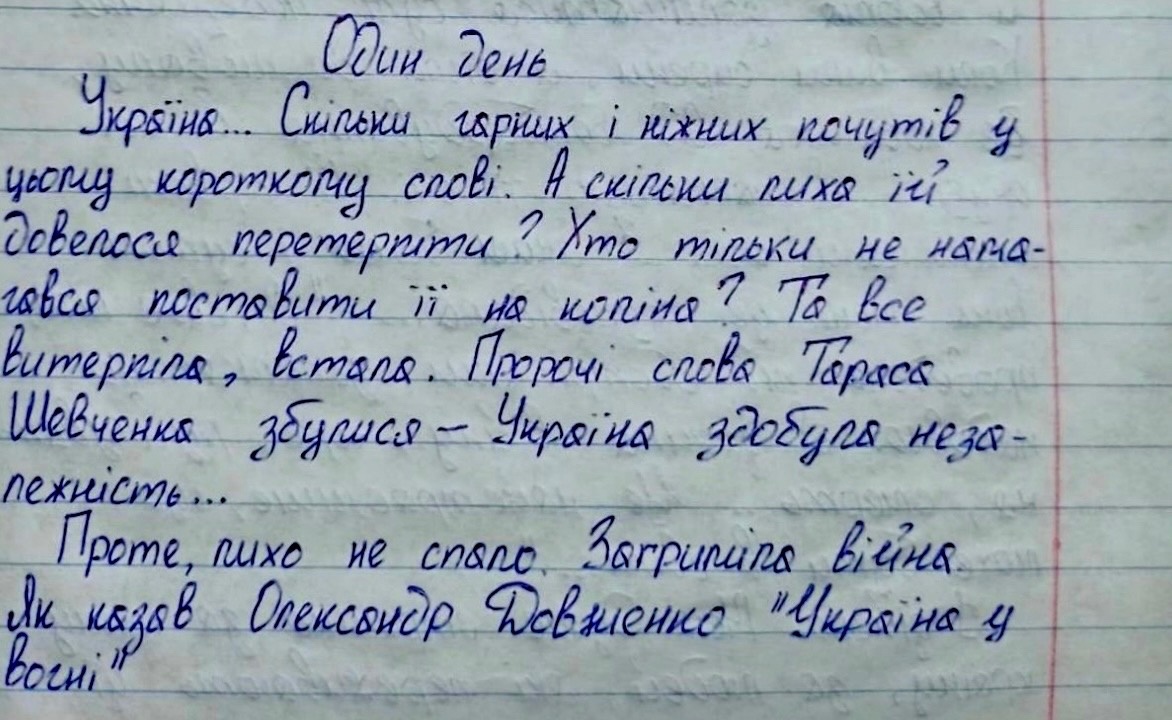 Один день
Україна... Скільки гарних і ніжних почутів у
цьому короткому слові. А скільки лиха їй
довелося перетерпіти? Хто тільки не нама-
гався поставити її на коліна? Та все
витерпіла, встала. Пророчі слова Тараса
Шевченка збулися – Україна здобула неза-
лежність...
Проте, лихо не спало. Загриміла війна.
Як казав Олександр Довженко "Україна у
вогні"